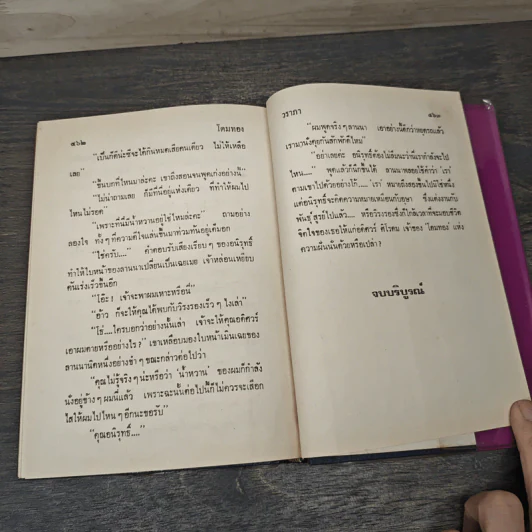 ๕๖๒ โคมทอง
"เป็นก็ดีน่ะซีจะได้กินหมดเสียคนเดียว ไม่ให้เหลือ
เลย"
"ขี้นบกที่ไหนมาล่ะคะ เขาถึงสอนจนพูดเก่งอย่างนี้..."
"ไม่น่าถามเลย ก็มีที่นี่อยู่แห่งเดียว ที่ทำให้ผมไป
ไหนไม่รอด"
"เพราะที่นี่มีน้ำหวานอยู่ใช่ไหมล่ะคะ" ถามอย่าง
ลองใจ ทั้ง ๆ ที่ความดีใจแล่นขึ้นมาท่วมทันอยู่เต็มอก
"ใช่ครับ...." คำตอบรับเสียงเรียบ ๆ ของอนิรุทธิ์
ทำให้ใบหน้าของลานนาเปลี่ยนเป็นเฉยเมย เจ้าหล่อนเหยียบ
คันเร่งเร็วขึ้นอีก
"โอ๊ะ! เจ้าจะพาผมเหาะหรือนี่"
"อ้าว ก็จะให้คุณได้พบกับวีรงรองเร็ว ๆ ไงเล่า"
"โธ่....ใครบอกว่าอย่างนั้นเล่า เจ้าจะให้คุณอดิศวร์
เอาผมตายหรืออย่างไร?" เขาเหลือบมองใบหน้าเมินเฉยของ
ลานนานิดหนึ่งอย่างขำ ๆ ขณะกล่าวต่อไปว่า
"คุณไม่รู้จริง ๆ น่ะหรือว่า 'น้ำหวาน' ของผมก็กำลัง
นั่งอยู่ข้าง ๆ ผมนี่แล้ว เพราะฉะนั้นต่อไปนี้ก็ไม่ควรจะเลือก
ไสให้ผมไปไหน ๆ อีกนะขอรับ"
"คุณอนิรุทธิ์...."
วราภา ๕๖๓
"ผมพูดจริง ๆ ลานนา เอาอย่างนี้ดีกว่าหยุดรถแล้ว
เรามานั่งคุยกันสักพักดีไหม"
"อย่าเลยค่ะ อนิรุทธิ์ต้องไม่ลืมนะว่านี่เรากำลังจะไป
ไหน...." พูดแล้วก็นึกขึ้นได้ ลานนาพลอยใช้คำว่า 'เรา'
ตามเขาไปด้วยอย่างไร้.... 'เรา' หมายถึงสองขึ้นไปใช่หนึ่ง
แต่อนิรุทธิ์จะคิดความหมายเหมือนกับอาษา ซึ่งแต่งงานกับ
พันธุ์ สูรย์ไปแล้ว.... หรือวีรงรองซึ่งใกล้เวลาที่จะมอบชีวิต
จิตใจของเธอให้แก่อดิศวร์ ศิโรดม เจ้าของ 'โคมทอง' แห่ง
ความฝันนั้นด้วยหรือเปล่า?
จบบริบูรณ์